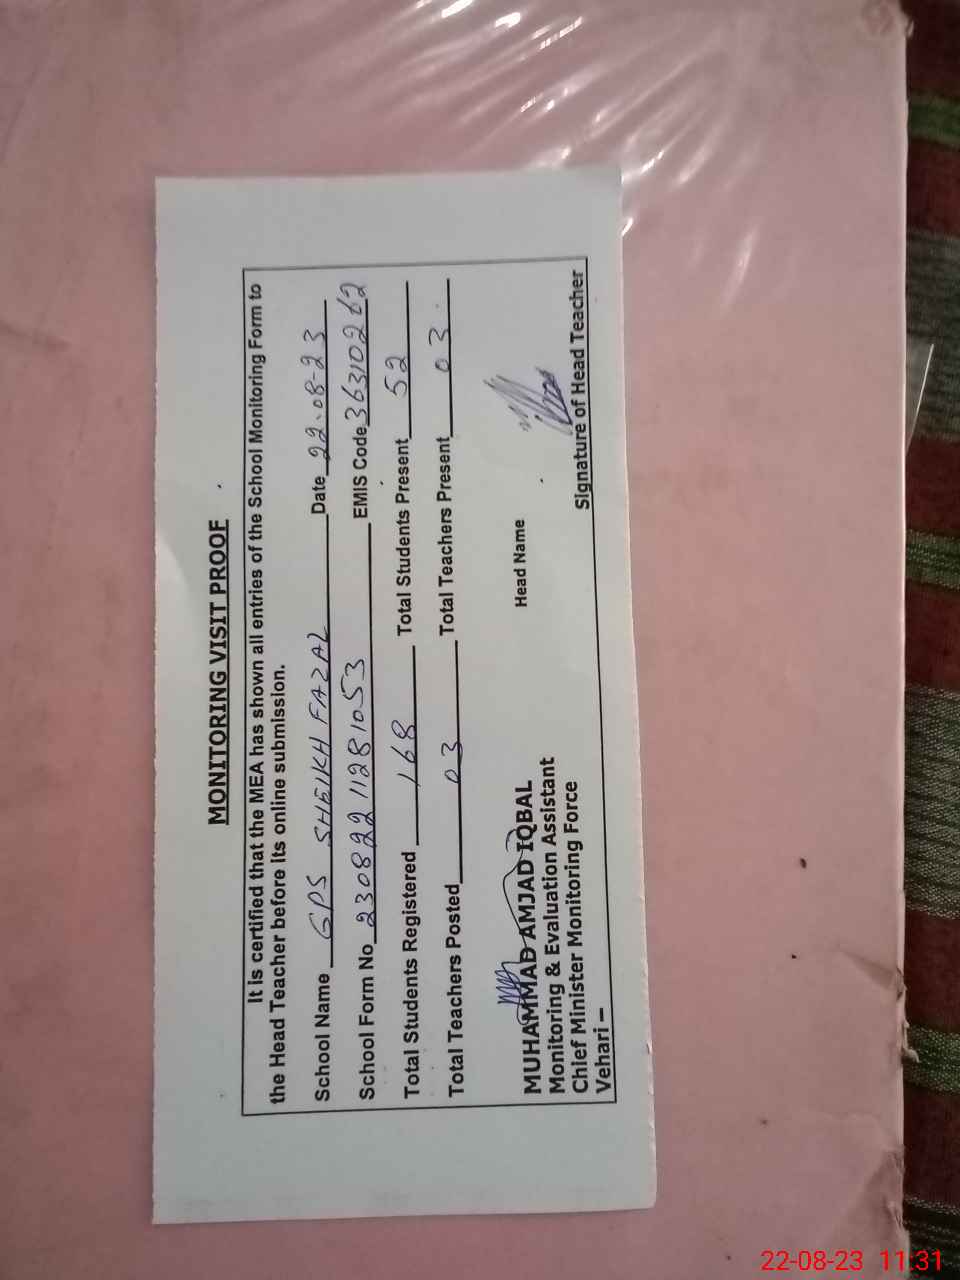 MONITORING VISIT PROOF
It is certified that the MEA has shown all entries of the School Monitoring Form to
the Head Teacher before its online submission.
School Name GPS SHEIKH FAZAL Date 22-08-23
School Form No 230822 11281053 EMIS Code 36310262
Total Students Registered 168 Total Students Present 52
Total Teachers Posted 03 Total Teachers Present 03
MUHAMMAD AMJAD IQBAL Head Name
Monitoring & Evaluation Assistant
Chief Minister Monitoring Force
Vehari – Signature of Head Teacher
22-08-23 11:31